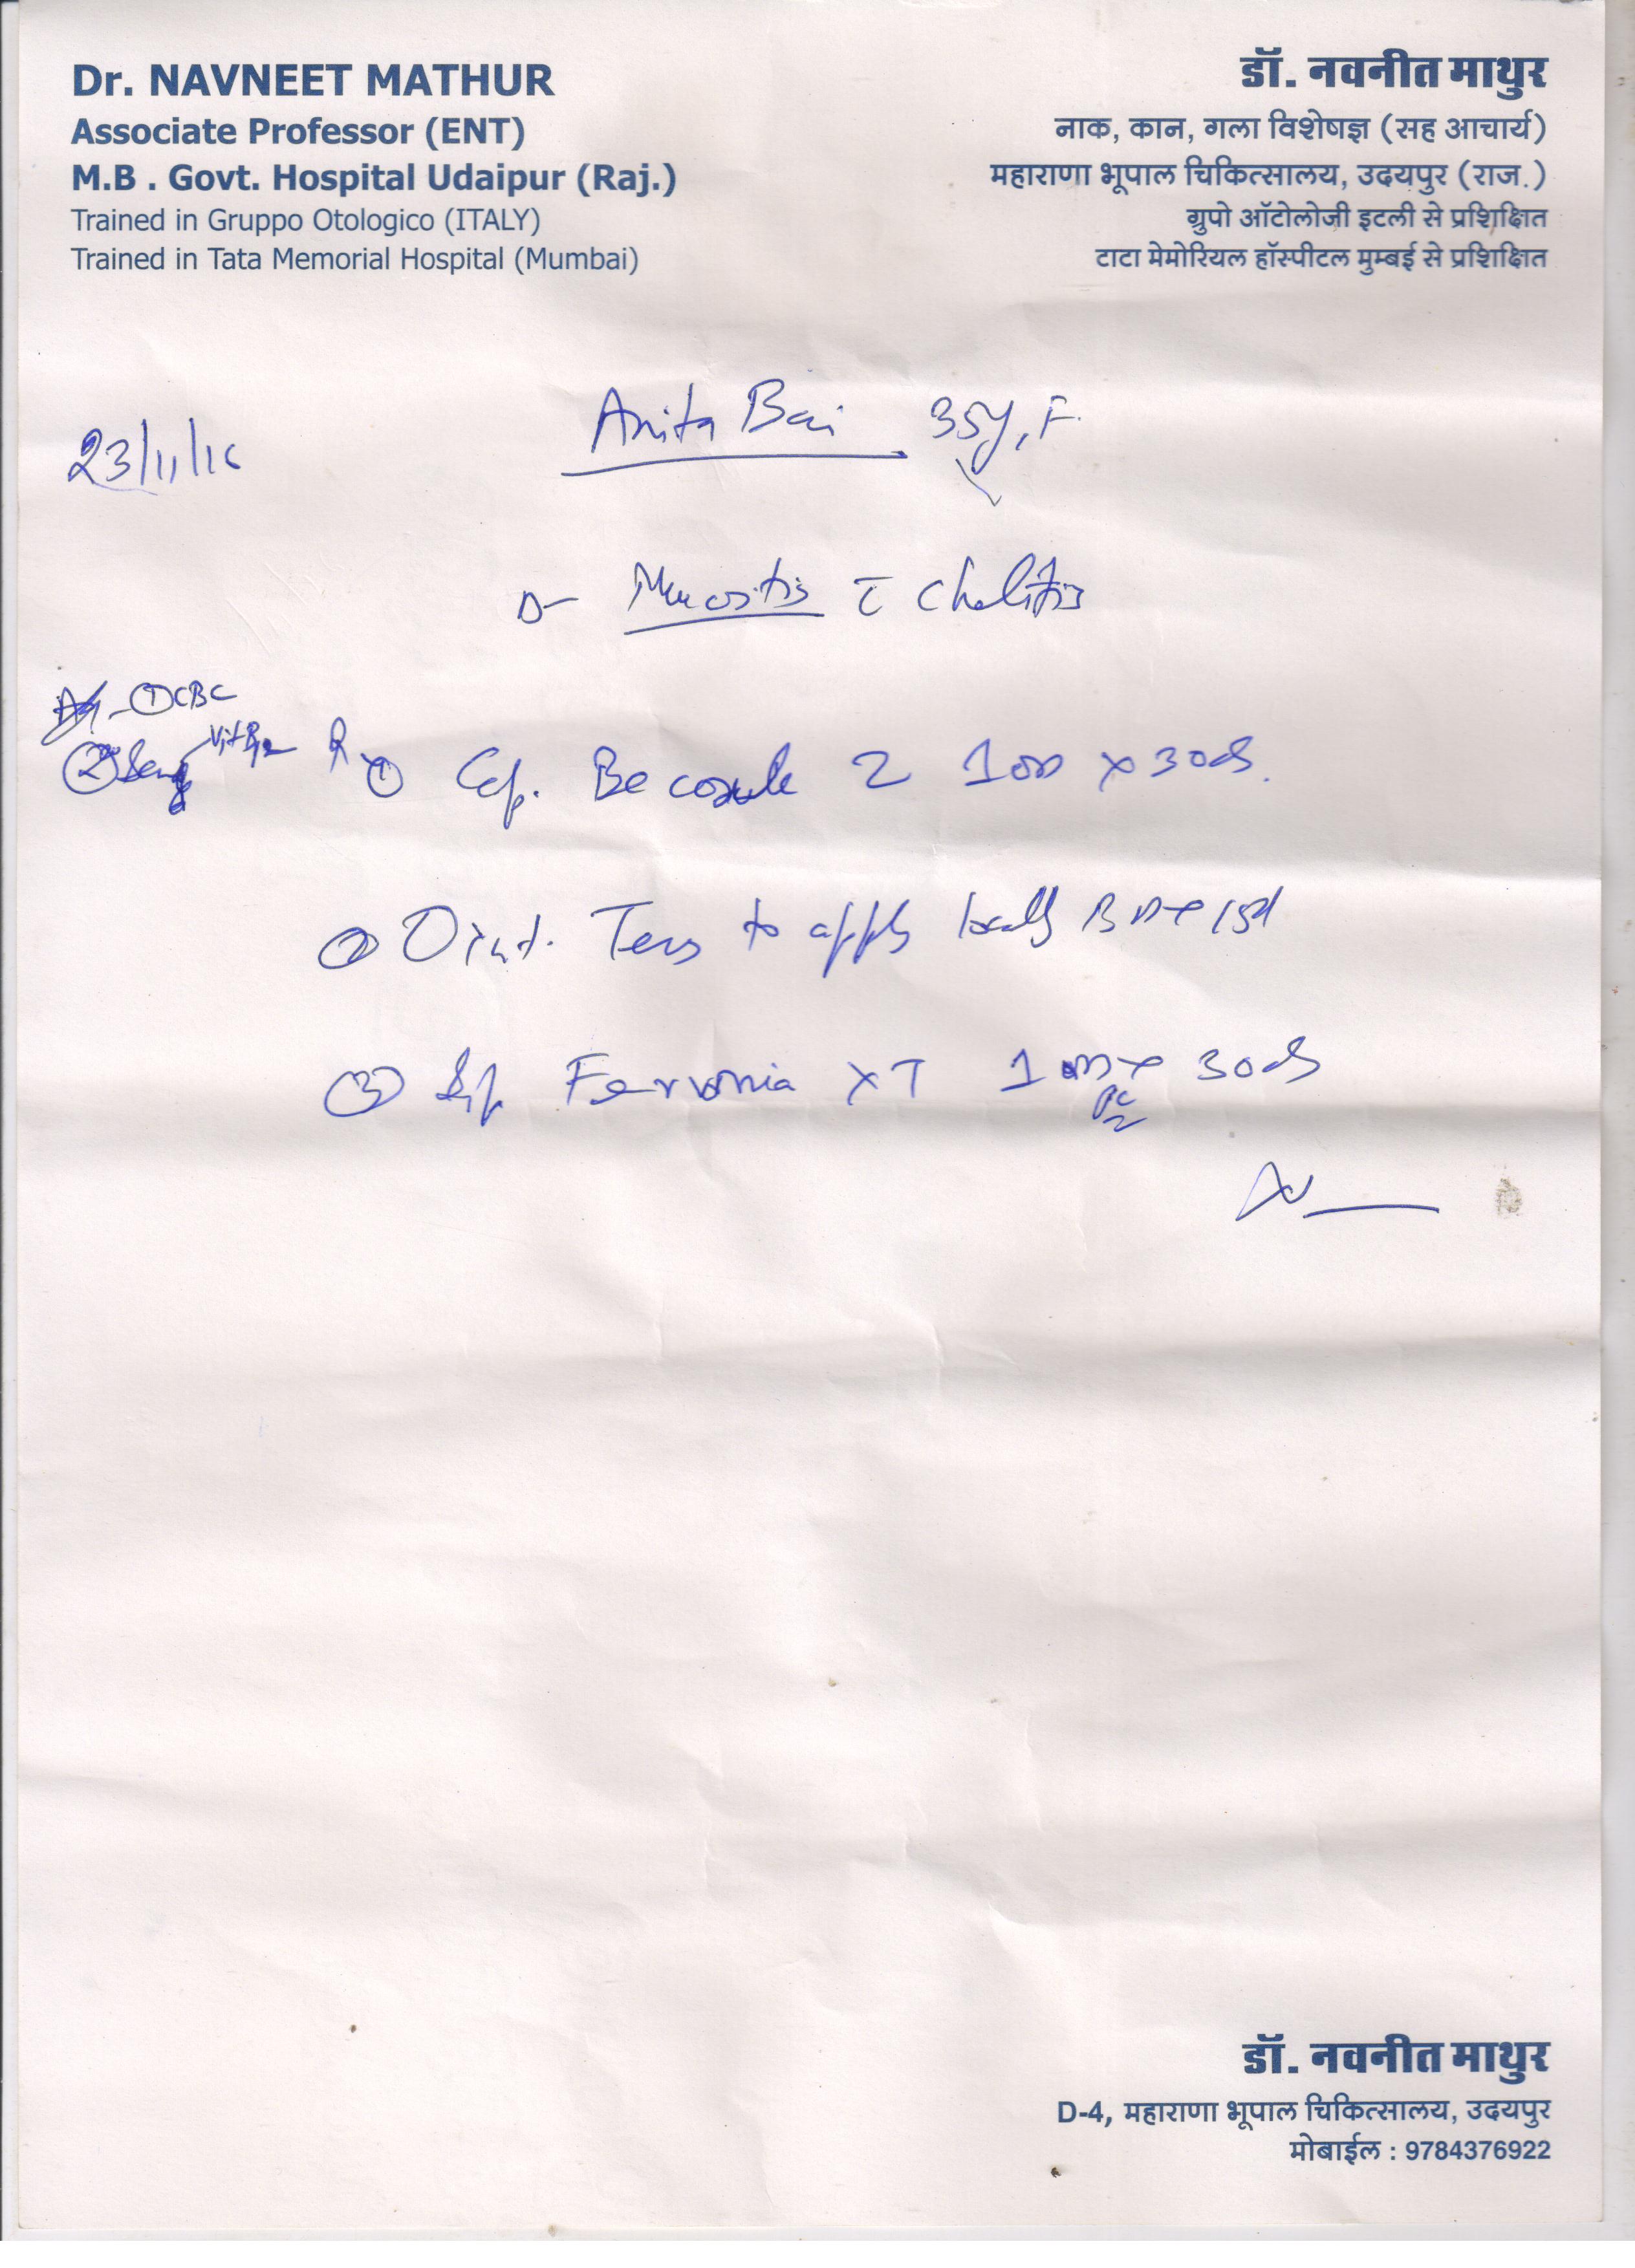 Dr. NAVNEET MATHUR
Associate Professor (ENT)
M.B . Govt. Hospital Udaipur (Raj.)
Trained in Gruppo Otologico (ITALY)
Trained in Tata Memorial Hospital (Mumbai)
डॉ. नवनीत माथुर
नाक, कान, गला विशेषज्ञ (सह आचार्य)
महाराणा भूपाल चिकित्सालय, उदयपुर (राज.)
ग्रुपो ऑटोलोजी इटली से प्रशिक्षित
टाटा मेमोरियल हॉस्पीटल मुम्बई से प्रशिक्षित
Anita Bai 35y, F.
23/11/16
D- Mucositis c̄ Chelitis
① CBC
② Vit B12
Rx ① Cap. Becosule Z 1 OD x 30d.
② Oint. Tess to apply locally x 15d
③ Syp Ferronia XT 1 OD x 30d
डॉ. नवनीत माथुर
D-4, महाराणा भूपाल चिकित्सालय, उदयपुर
मोबाईल : 9784376922